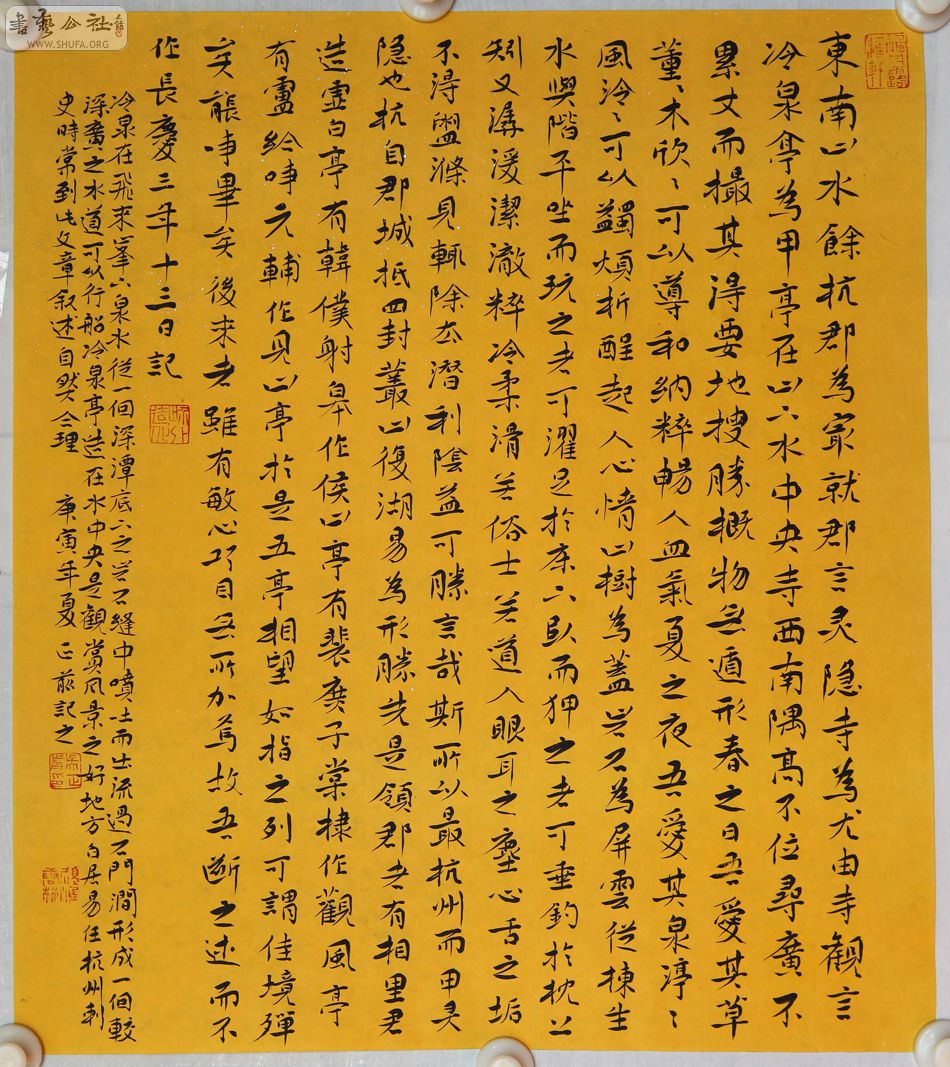 東南山水餘杭郡為最就郡言灵隐寺為尤由寺觀言
冷泉亭為甲亭在山下水中央寺西南隅高不倍尋廣不
累丈而撮其淂要地搜勝概物無遁形春之日吾愛其草
薰〻木欣〻可以導和納粹暢人血氣夏之夜吾愛其泉渟〻
風泠〻可以蠲煩析酲起人心情山樹為蓋岩石為屏雲従棟生
水與階平坐而玩之者可濯足於床下卧而狎之者可垂釣於枕上
矧又潺湲潔澈粹冷柔滑若俗士若道人眼耳之塵心舌之垢
不淂盥滌見輒除去潛利陰益可勝言哉斯所以最杭州而甲灵
隐也杭自郡城抵四封叢山復湖易為形勝先是領郡者有相里君
造虛白亭有韓僕射皋作候山亭有裴庾子棠棣作觀風亭
有盧給事元輔作見山亭於是五亭相望如指之列可謂佳境殫
矣能事畢矣後來者雖有敏心巧目無所加焉故吾断之述而不
作長慶三年十三日記
冷泉在飛來峯下泉水從一個深潭底下之岩石縫中噴吐而出流過石門澗形成一個較
深廣之水道可以行船冷泉亭造在水中央是觀賞風景之好地方白居易任杭州刺
史時常到此文章叙述自然合理 庚寅年夏 正
記之
書藝公社
WWW.SHUFA.ORG